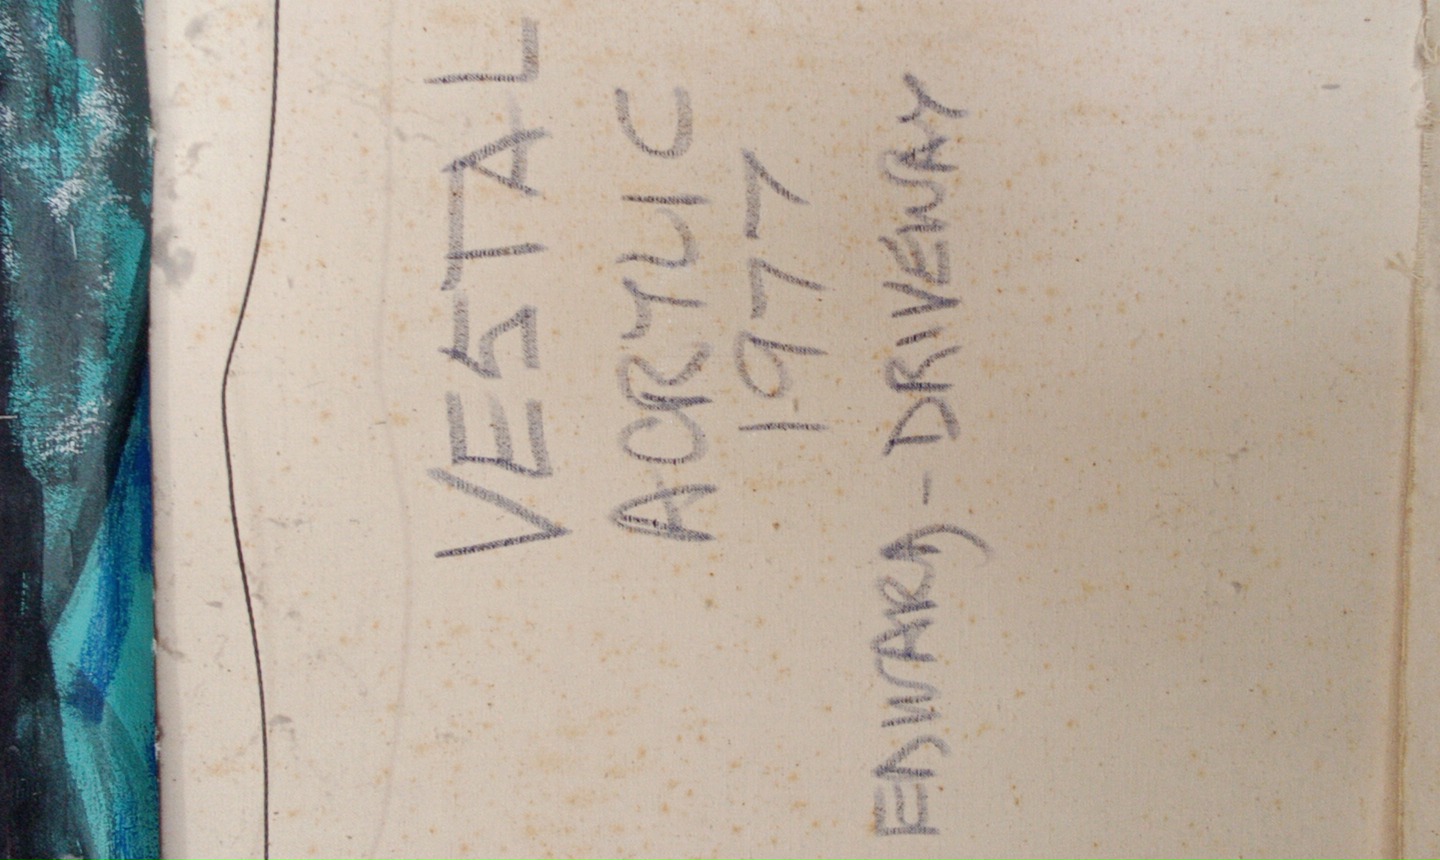 VESTAL
ACRYLIC
1977
EDWARD - DRIVEWAY